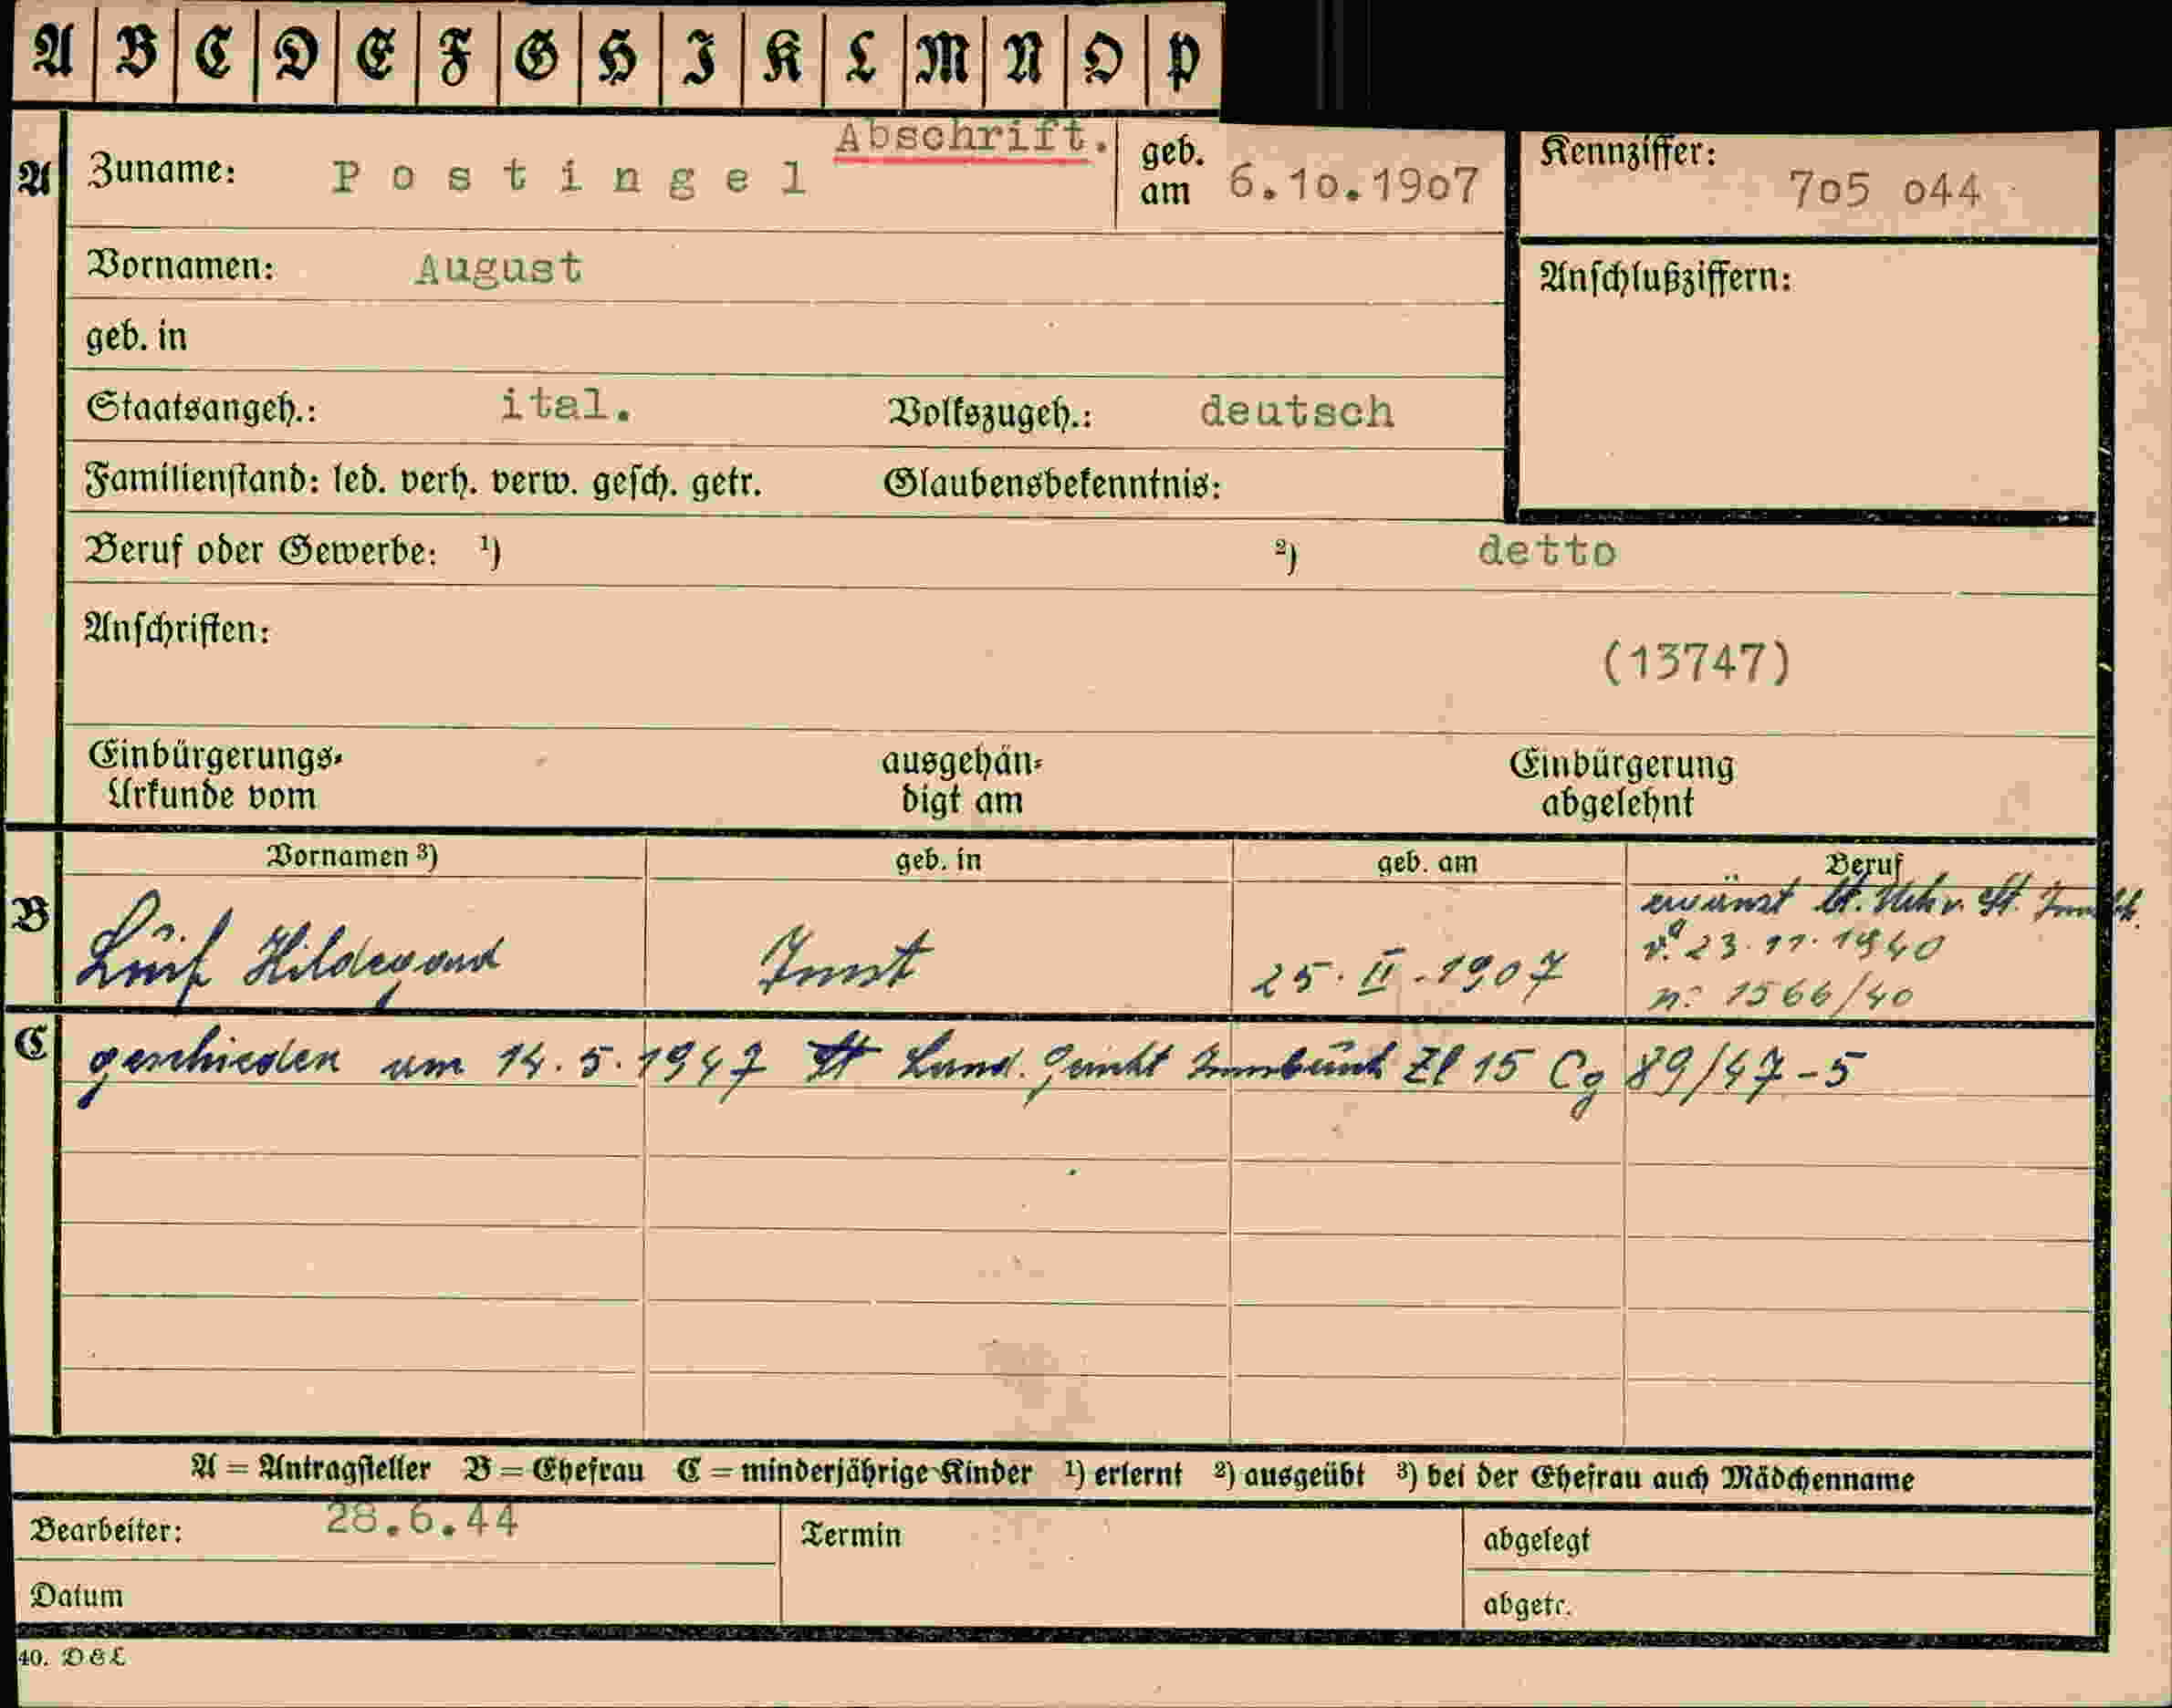 A B C D E F G H I K L M N O P
Abschrift.
A Zuname: Postingel geb. am 6.10.1907 Kennziffer: 705 044
Vornamen: August Anschlußziffern:
geb. in
Staatsangeh.: ital. Volkszugeh.: deutsch
Familienstand: led. verh. verw. gesch. getr. Glaubensbekenntnis:
Beruf oder Gewerbe: ¹) ²) detto
Anschriften:
(13747)
Einbürgerungs- ausgehän- Einbürgerung
Urkunde vom digt am abgelehnt
Vornamen ³) geb. in geb. am Beruf
B Hildegard 25.II.1907
23.11.1940
1566/40
C geschieden am 14.5.1947 Land. Gericht Innsbruck Zl 15 Cg 89/47-5
A = Antragsteller B = Ehefrau C = minderjährige Kinder ¹) erlernt ²) ausgeübt ³) bei der Ehefrau auch Mädchenname
Bearbeiter: 28.6.44 Termin abgelegt
Datum abgetr.
40. D & L